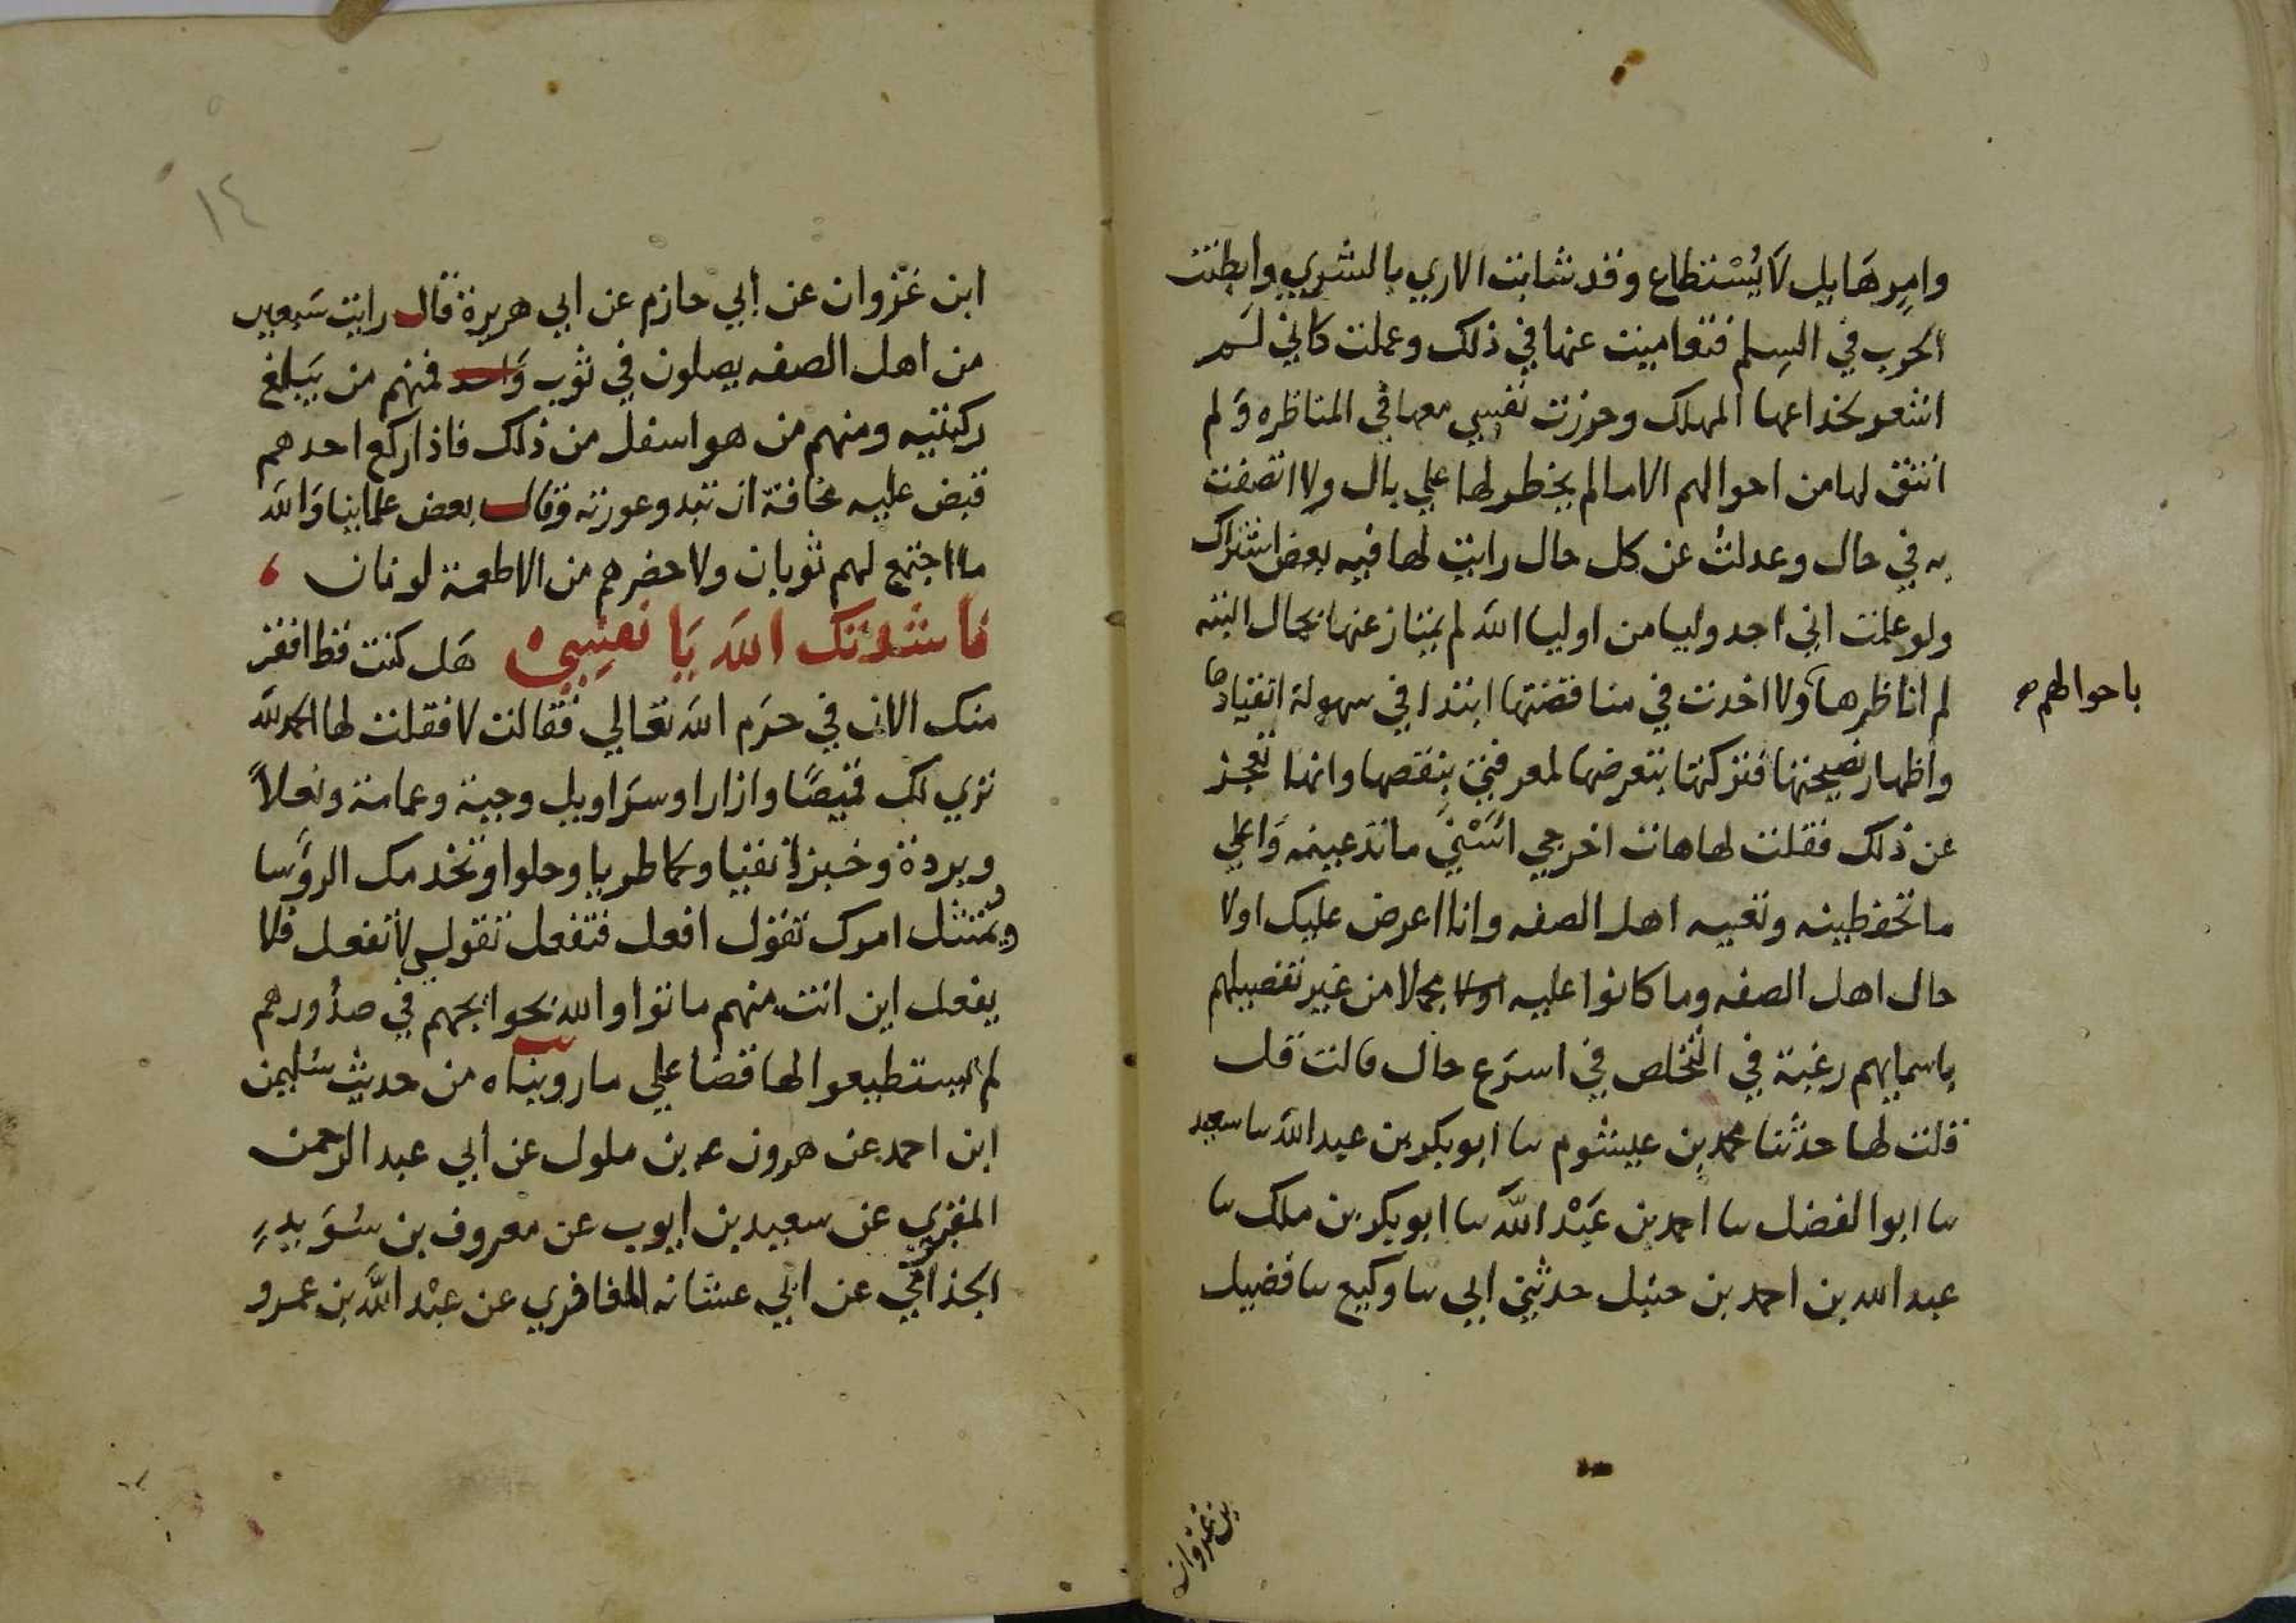 وامر هَايل لَا يُسْتطاع وقد شابت الاري بالشري وابطنت
الحرب في السلم فتعاميت عنها في ذلك وعملت كاني لم
اشعر بخداعها المهلك وحررت نفسي معها في المناظره وَلم
اتفق لها من احوالهم الا ما لم يخطر لها علي بال ولا اتصفت
به في حال وعدلتُ عن كل حال رايت لها فيه بعض اشتراك
ولو علمت اني اجد وليا من اوليا اللّه لم يمتاز عنها بحال البته
لم اناظرها ولا اخدت في مناقضتها ابتدا في سهولة انقيادها
باحوالهم صح
واظهار نصيحتها فتركتها بتعرضها لمعرفتي بنقصها وانها تعجز
عن ذلك فقلت لها هات اخرجي ما تدعينه وَاعلي
ما تحفظينه وتعيبه اهل الصفه وانا اعرض عليك اولا
حال اهل الصفه وما كانوا عليه اولا مجملا من غير تفصيلهم
باسمايهم رغبة في التخلص في اسرَع حال قالت قل
قلت لها حدثنا محمد بن عيشوم نا ابو بكر بن عبد اللّه نا سعيد
نا ابو الفضل نا احمد بن عَبْد اللّه نا ابو بكر بن ملك نا
عبد الله بن احمد بن حنبل حدثني ابي نا وكيع نا فضيل
بن غزوان
١٤
ابن غزوان عن ابي حازم عن ابي هريرة قال رايت سَبعين
من اهل الصفه يصلون في ثوب وَاحد فمنهم من يَبلغ
ركبتيه ومنهم من هو اسفل من ذلك فاذا ركع احدهم
قبض عليه مخافة ان تبدو عورته وقال بعض علماينا وَاللّه
ما اجتمع لهم ثوبان ولا حضرهم من الاطعمة لونان ،
ناشدتك اللّه يَا نفسي هَل كنت قط افقر
منك الان في حرَم اللّه تعالي فقالت لا فقلت لها الحمد للّه
تري لك قميصًا وازارا وسرَاويل وجبة وعمامة ونعلاً
وبردة وخبزا نقيا ولحما طريا وحلوا وتخدمك الروَسا
ويُمتثل امرك تقول افعل فتفعل تقولي لا تفعل فلا
يفعل اين انت منهم ماتوا والله بحوايجهم في صدُورهم
لم يستطيعوا لها قضا علي ما رويناه من حديث سُليمن
ابن احمد عن هرون بن ملول عن ابي عبد الرحمن
المقري عن سعيد بن ايوب عن معروف بن سُوَيد
الجذامي عن ابي عشانه المعافري عن عبْد اللّه بن عمرو